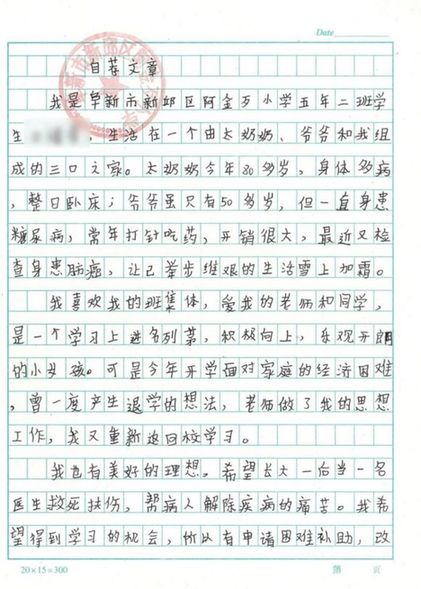 Date
新市新邱区
自荐文章
我是阜新市新邱区阿金歹小学五年二班学
生,生活在一个由太奶奶、爷爷和我组
成的三口之家。太奶奶今年80多岁,身体多病
,整日卧床;爷爷虽只有50多岁,但一直身患
糖尿病,常年打针吃药,开销很大,最近又检
查身患肺癌,让已举步维艰的生活雪上加霜。
我喜欢我的班集体,爱我的老师和同学,
是一个学习上进名列第,积极向上,乐观开朗
的小女孩。可是今年开学面对家庭的经济困难
,曾一度产生退学的想法,老师做了我的思想
工作,我又重新返回校学习。
我也有美好的理想。希望长大一后当一名
医生救死扶伤,帮病人解除疾病的痛苦。我希
望得到学习的机会,所以有申请困难补助,改
20×15=300 第 页